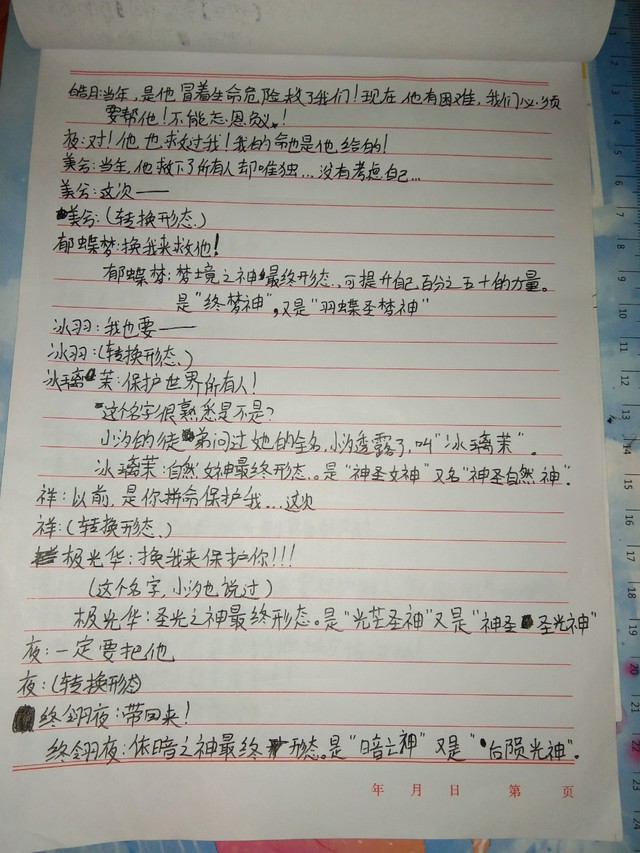 皓月:当年,是他冒着生命危险救了我们!现在他有困难,我们必须
要帮他!不能忘恩负义!
夜:对!他也救过我!我的命也是他给的!
美兮:当年,他救下了所有人却唯独...没有考虑自己...
美兮:这次——
美兮:(转换形态、)
郁蝶梦:换我来救他!
郁蝶梦:梦境之神最终形态、,可提升自己百分之五十的力量。
是“终梦神”,又是“羽蝶圣梦神”
冰羽:我也要——
冰羽:(转换形态、)
冰璃茉:保护世界所有人!
这个名字很熟悉是不是?
小汐的徒弟问过她的全名,小汐透露了,叫“冰璃茉”。
冰璃茉:自然女神最终形态、。是“神圣女神”又名“神圣自然神”.
祥:以前,是你拼命保护我...这次
祥:(转换形态、)
极光华:换我来保护你!!!
(这个名字,小汐也说过)
极光华:圣光之神最终形态。是“光芒圣神”又是“神圣圣光神”
夜:一定要把他
夜:(转换形态)
终翎夜:带回来!
终翎夜:依暗之神最终形态。是“暗亡神”又是“后陨光神”.
年 月 日 第 页
11
12
13
15
16
17
18
19
20
21
22
23
24